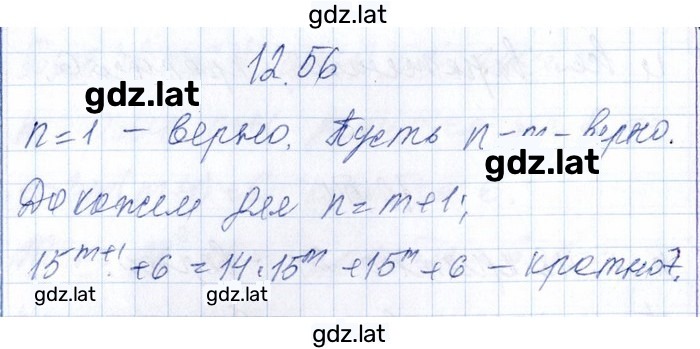 gdz.lat
12.56
gdz.lat
n=1 – верно. Пусть n – m – верно.
gdz.lat
Докажем для n=m+1;
15^{m+1} + 6 = 14·15^m + 15^m + 6 – кратно 7.
gdz.lat gdz.lat
gdz.lat